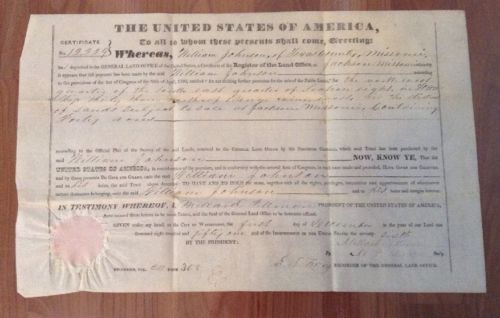 THE UNITED STATES OF AMERICA,
CERTIFICATE To all to whom these presents shall come, Greeting:
No. 12329 Whereas, William Johnson, of County, Missouri,
deposited in the GENERAL LAND OFFICE of the United States, a Certificate of the Register of the Land Office, at Jackson Missouri
it appears that full payment has been made by the said William Johnson according
to the provisions of the Act of Congress of the 24th of April, 1820, entitled "An act making further provision for the sale of the Public Lands," for the north east
quarter of the south east quarter of Section eight, in Town
ship thirty, of Range in the District
of Lands subject to sale at Jackson Missouri, Containing
Forty acres
according to the Official Plat of the Survey of the said Lands, returned to the General Land Office by the Surveyor General, which said Tract has been purchased by the
said William Johnson NOW, KNOW YE, That the
UNITED STATES OF AMERICA, in consideration of the premises, and in conformity with the several Acts of Congress, in such case made and provided, HAVE GIVEN AND GRANTED
and by these presents DO GIVE AND GRANT, unto the said William Johnson
and to his heirs, the said Tract above described: TO HAVE AND TO HOLD the same, together with all the rights, privileges, immunities and appurtenances of whatsoever
nature, thereunto belonging, unto the said William Johnson and to his heirs and assigns forever.
IN TESTIMONY WHEREOF, I, Millard Fillmore PRESIDENT OF THE UNITED STATES OF AMERICA,
have caused these letters to be made Patent, and the Seal of the General Land Office to be hereunto affixed.
GIVEN under my hand, at the CITY OF WASHINGTON, the first day of in the year of our Lord one
thousand eight hundred and fifty one and of the Independence of the United States the seventy sixth
BY THE PRESIDENT: Millard Fillmore
By Sec'y.
RECORDER OF THE GENERAL LAND OFFICE.
RECORDED, VOL. PAGE 302